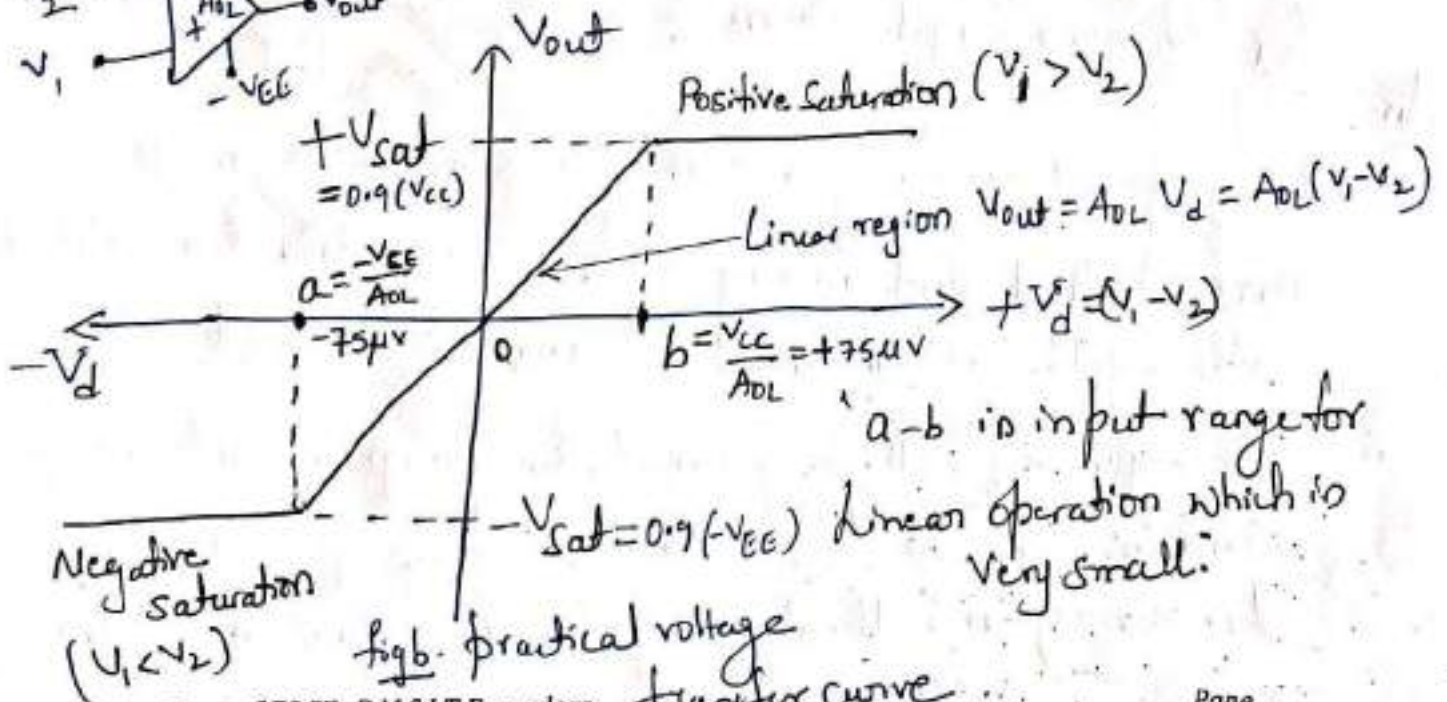 2
AOL
Vout
+
V1
-VEE
Vout
Positive Saturation (V1 > V2)
+Vsat
=0.9(Vcc)
Linear region Vout = AOL Vd = AOL(V1-V2)
a = -VEE/AOL
+Vd=(V1-V2)
-75μV
0
b = VCC/AOL = +75μV
-Vd
a-b is input range for
-Vsat=0.9(-VEE) Linear operation which is
very small.
Negative
saturation
(V1<V2)
fig b. practical voltage
curve
Page